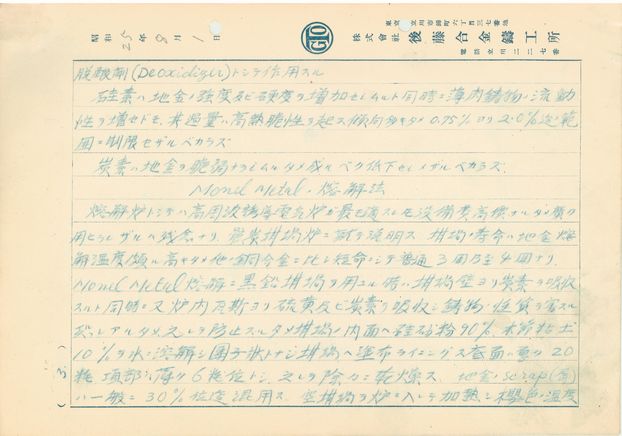 昭和25年8月1日
東京都立川市錦町六丁目三七番地
株式會社 後藤合金鑄工所
電話立川二二七番
GTO
脱酸剤(Deoxidizer)トシテ作用スル
硅素ハ地金ノ強度及ビ硬度ヲ増加セシムルト同時ニ薄肉鋳物ノ流動
性ヲ増セドモ、其過量ハ高熱脆性ヲ起ス傾向アルタメ0.75%ヨリ2.0%迄ノ範
囲ニ制限セザルベカラズ
炭素ハ地金ヲ脆弱ナラシムルタメ成ルベク低下セシメザルベカラズ.
Monel Metal ノ熔解法
熔解炉トシテハ高周波誘導電気炉ガ最モ適スルモ設備費高價ナルタメ
用ヒラレザルハ残念ナリ、坩堝炉ニ就テ説明ス 坩堝ノ寿命ハ地金熔
解温度ガ頗ル高キタメ他ノ銅合金ニ比シ短命ニシテ普通3回乃至4回ナリ、
Monel Metal 熔解ニ黒鉛坩堝ヲ用ユル時ハ坩堝壁ヨリ炭素ヲ吸収
スルト同時ニ又炉内瓦斯ヨリ硫黄及ビ炭素ヲ吸収シ鋳物ノ性質ヲ害スル
アルタメ、之レヲ防止スルタメ坩堝ノ内面ヘ硅砂粉90%、木節粘土
10%ヲ水ニ溶解シ団子状トナシ坩堝ヘ塗布ライニングス 底面ハ厚ク20
粍頂部ハ薄ク6粍位トシ、之レヲ除々ニ乾燥ス、地金ノscrap(屑)
ハ一般ニ30%位迄混用ス、空坩堝ヲ炉ニ入レテ加熱シ櫻色ノ温度
(3)